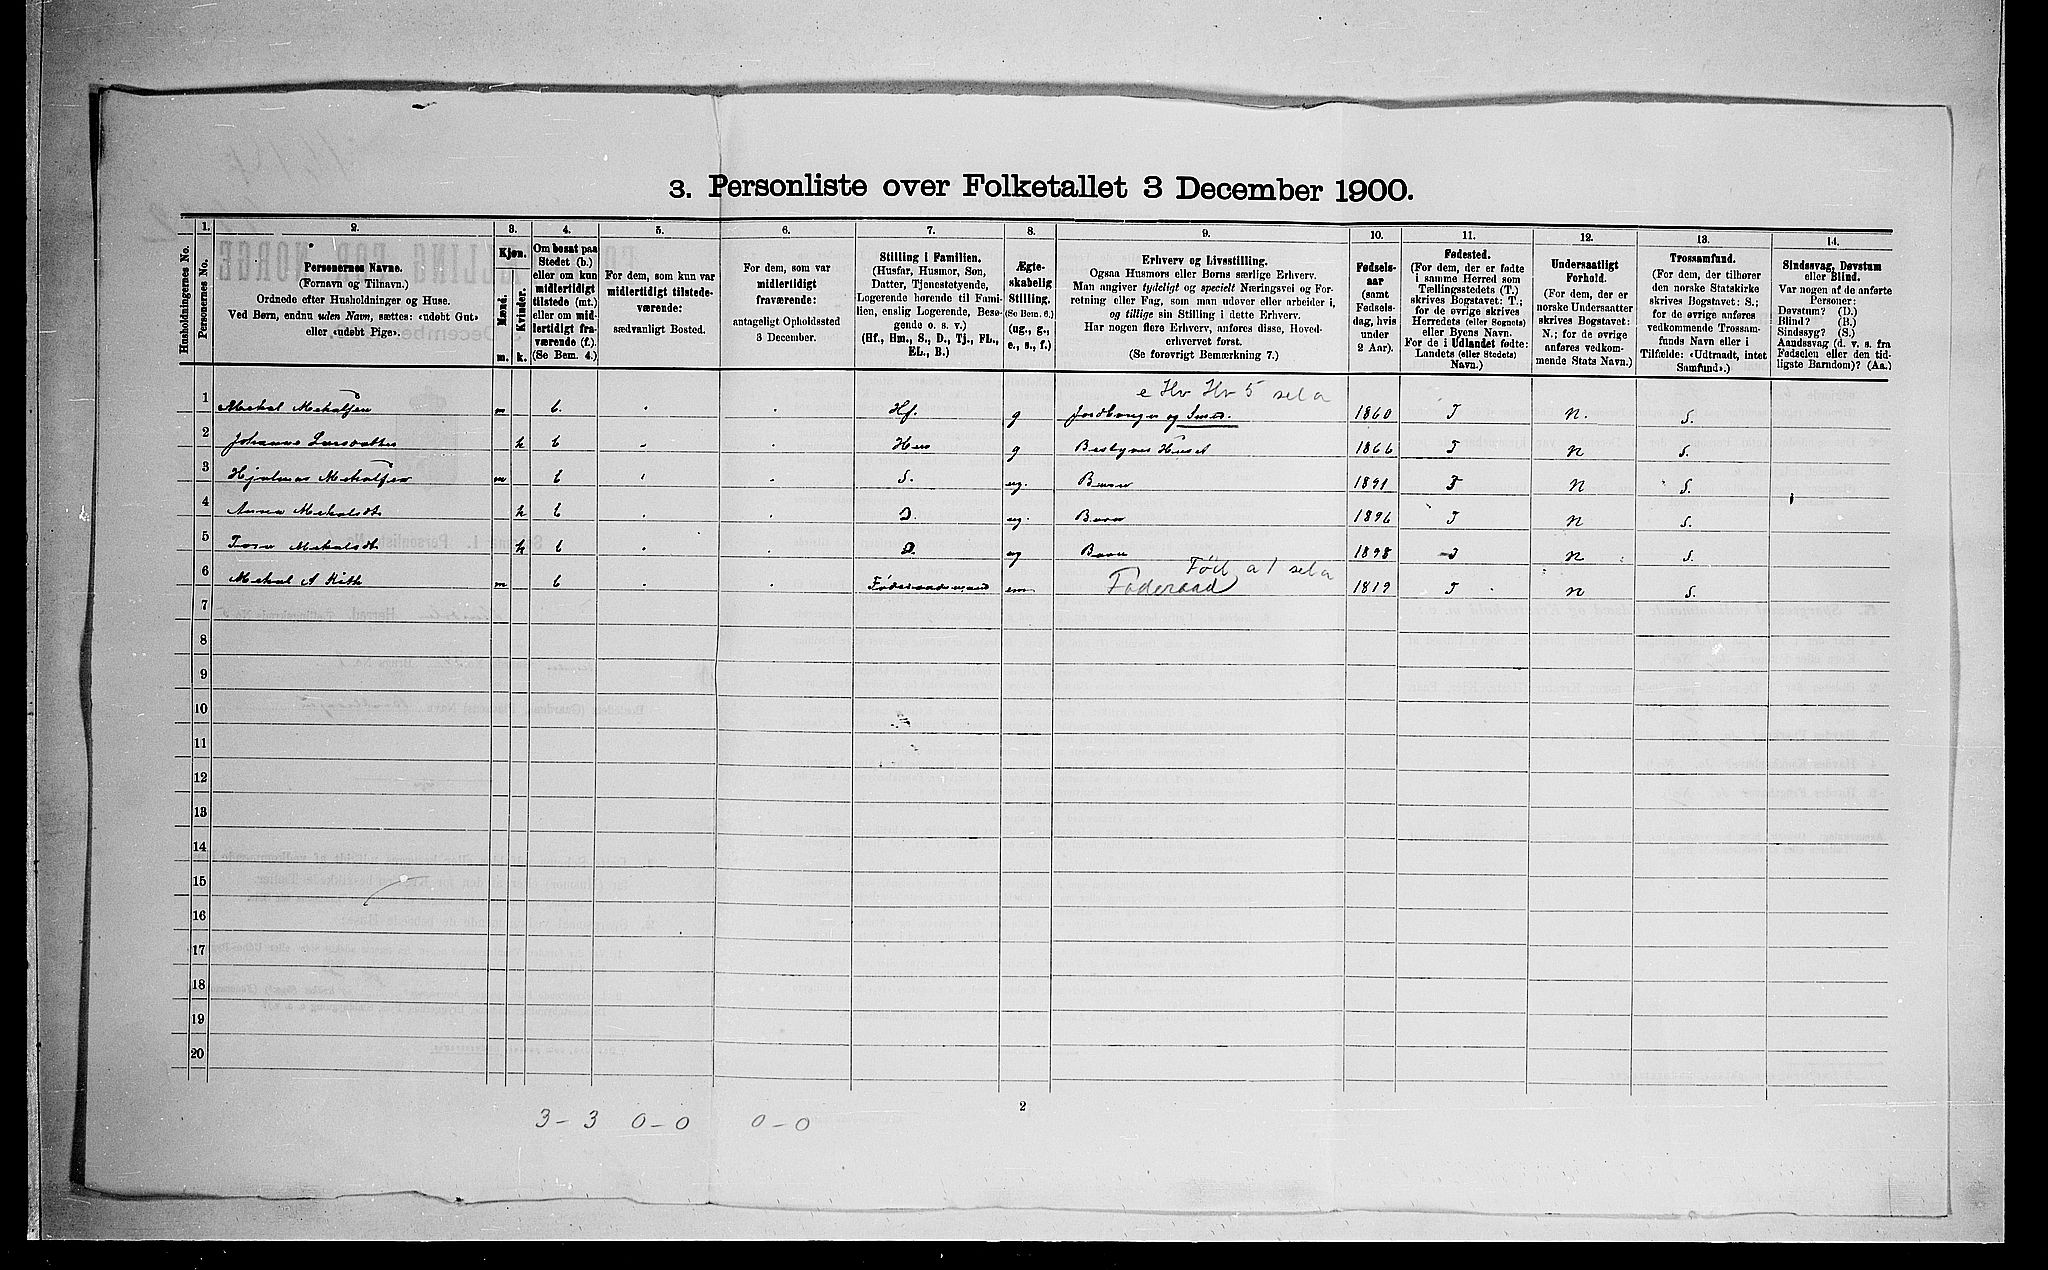 3. Personliste over Folketallet 3 December 1900.
Husholdningernes No.
1.
Personernes No.
2.
Personernes Navne.
(Fornavn og Tilnavn.)
Ordnede efter Husholdninger og Huse.
Ved Børn, endnu uden Navn, sættes: «udøbt Gut»
eller «udøbt Pige».
3.
Kjøn.
Mænd.
Kvinder.
m. k.
4.
Om bosat paa
Stedet (b.)
eller om kun
midlertidigt
tilstede (mt.)
eller om mid-
lertidigt fra-
værende (f.)
(Se Bem. 4.)
5.
For dem, som kun var
midlertidigt tilstede-
værende:
sædvanligt Bosted.
6.
For dem, som var
midlertidigt
fraværende:
antageligt Opholdssted
3 December.
7.
Stilling i Familien.
(Husfar, Husmor, Søn,
Datter, Tjenestetyende,
Logerende hørende til Fami-
lien, enslig Logerende, Besø-
gende o. s. v.)
(Hf., Hm., S., D., Tj., FL.,
EL., B.)
8.
Ægte-
skabelig
Stilling.
(Se Bem. 6.)
(ug., g.,
e., s., f.)
9.
Erhverv og Livsstilling.
Ogsaa Husmors eller Børns særlige Erhverv.
Man angiver tydeligt og specielt Næringsvei og For-
retning eller Fag, som man udøver eller arbeider i,
og tillige sin Stilling i dette Erhverv.
Har nogen flere Erhverv, anføres disse, Hoved-
erhvervet først.
(Se forøvrigt Bemærkning 7.)
10.
Fødsels-
aar
(samt
Fødsels-
dag, hvis
under
2 Aar).
11.
Fødested.
(For dem, der er fødte
i samme Herred som
Tællingsstedets (T.)
skrives Bogstavet: T.;
for de øvrige skrives
Herredets (eller Sognets)
eller Byens Navn.
For de i Udlandet fødte:
Landets (eller Stedets)
Navn.)
12.
Undersaatligt
Forhold.
(For dem, der er
norske Undersaatter
skrives Bogstavet:
N.; for de øvrige
anføres vedkom-
mende Stats Navn.)
13.
Trossamfund.
(For dem, der tilhører
den norske Statskirke
skrives Bogstavet: S.;
for de øvrige anføres
vedkommende Trossam-
funds Navn eller i
Tilfælde: «Udtraadt, intet
Samfund».)
14.
Sindssvag, Døvstum
eller Blind.
Var nogen af de anførte
Personer:
Døvstum? (D.)
Blind? (B.)
Sindssyg? (S.)
Aandssvag (d. v. s. fra
Fødselen eller den tid-
ligste Barndom)? (Aa.)
e Hv Hv 5 sel a
1 Mekal Mekalsen m b. Hf. g Jordbruger og Smed. 1860 T N. S.
2 Johanne k b g Bestyrer Huset 1866 T N S.
3 Hjalmar Mekalsen m b S. ug. Barn 1891 T N S.
4 Anna Mekalsdt k b D. ug. Barn 1896 T N S.
5 Mekalsdt k b D. ug Barn 1898 T N S.
Föll a 1 sel a
6 Mekal A m b Föderaadsmand em Föderaad 1819 T N S.
7
8
9
10
11
12
13
14
15
16
17
18
19
20
2
3-3 0-0 0-0